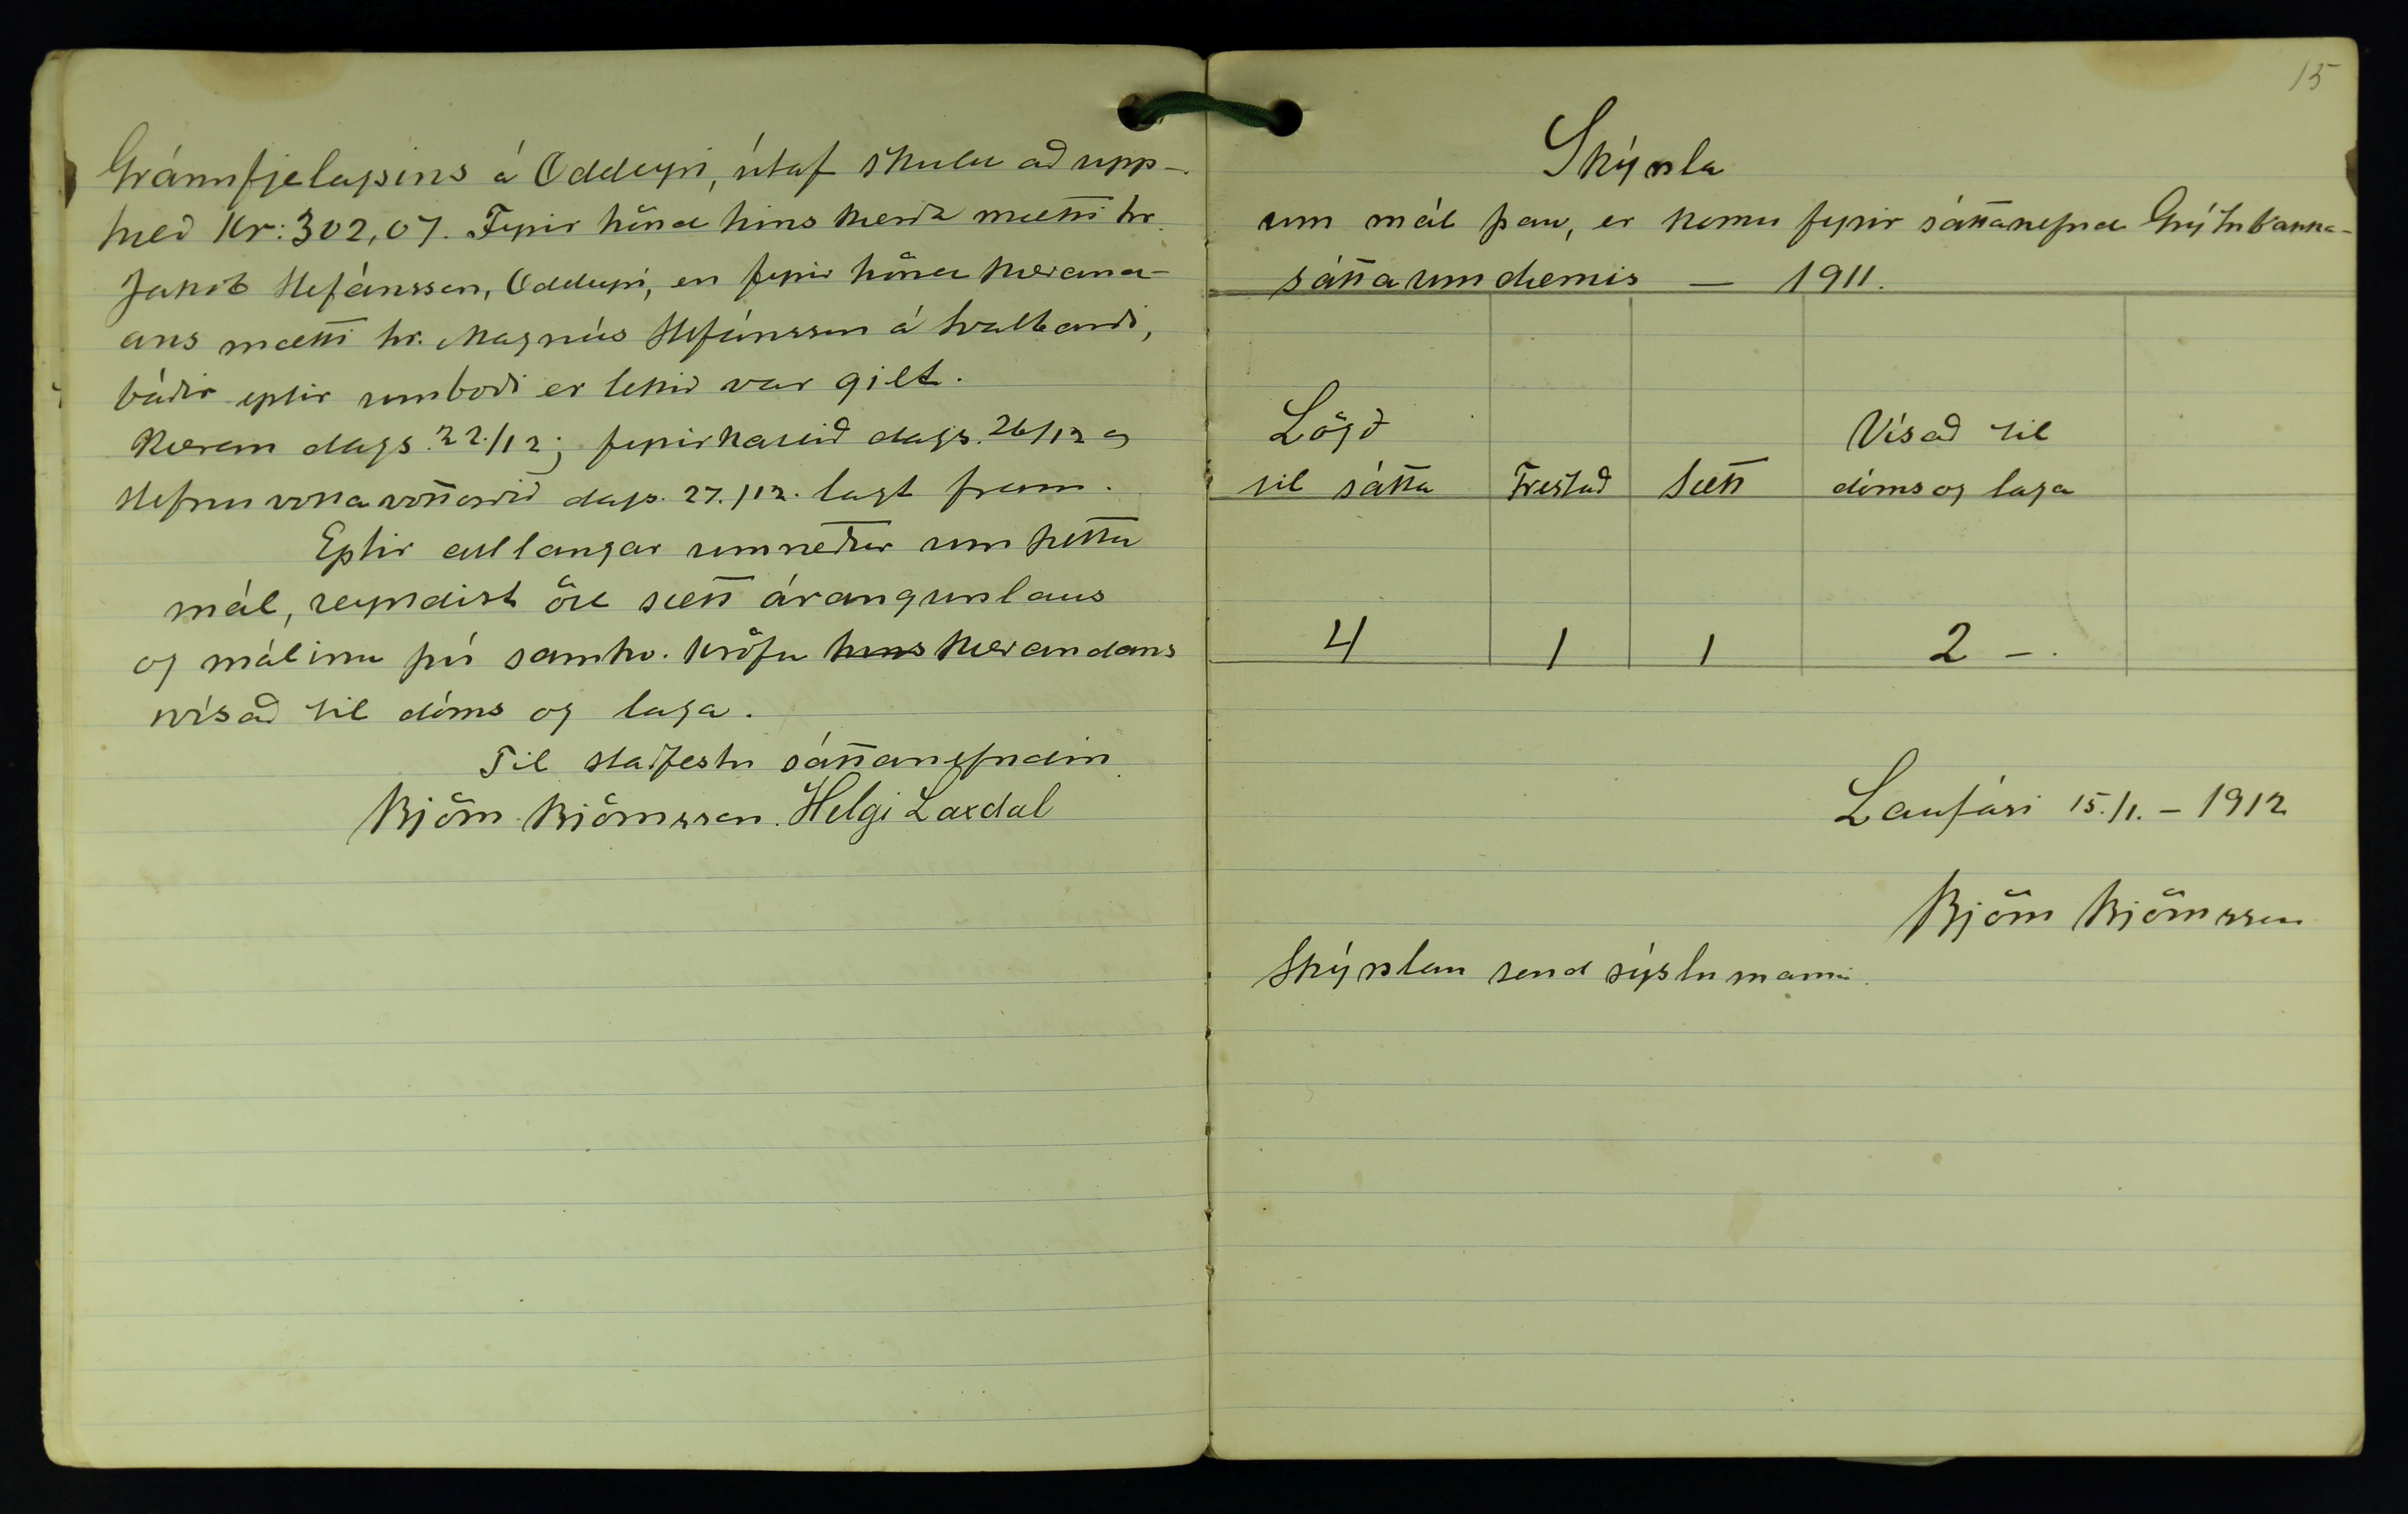 Gránufjelagsins á Oddeyri, útaf skuld að upp-
hæð Kr: 302,07. Fyrir hönd hins kærða mætti hr.
Jakob Stefánsson, Oddeyri, en fyrir hönd kærand-
ans mætti hr. Magnús Stefánsson á Svalbarði,
báðir eptir umboði er tekið var gilt.
Kæran dags. 22./12; fyrirkallið dags. 26/12 og
stefnuvottavottorðið dags. 27./12. lagt fram.
Eptir all langar umræður um þetta
mál, reyndist öll sætt árangurslaus
og málinu því samkv. kröfu hins kærandans
vísað til dóms og laga.
Til staðfestu sáttanefndin
Björn Björnsson. Helgi Laxdal
15
Skýrsla
um mál þau, er komu fyrir sáttanefnd Grýtubakka-
sáttaumdæmis — 1911.
Lögð
til sátta
Frestað
Sætt
Vísað til
dóms og laga
4 1 1 2 -.
Laufási 15./1. - 1912
Björn Björnsson
Skýrslan send sýslumanni.